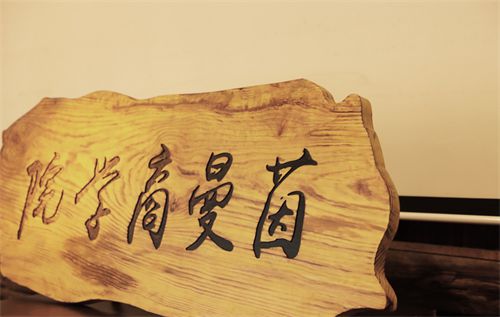 茵曼商学院